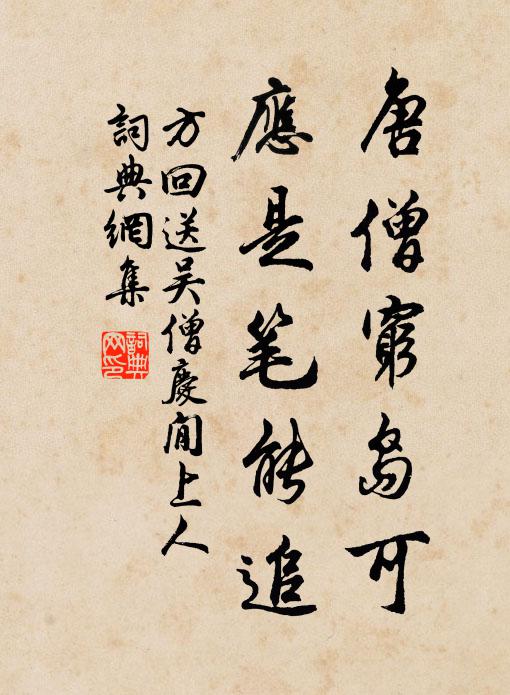 唐僧窮島可
應是笔能追
方回送吴僧慶閒上人
詞典網集
詞典网印